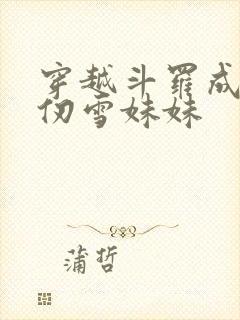 穿越斗罗成
仞雪妹妹
蒲哲